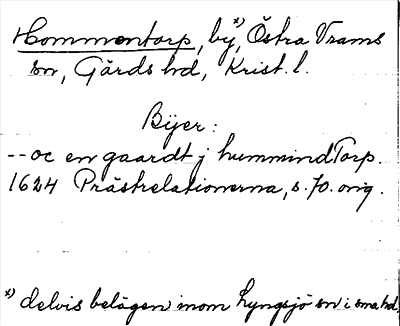 Hommentorp, by*), Östra Vrams
sn, Gärds hd, Krist. l.
Bijer:
-- oc en gaardt j hummindTorp.
1624 Prästrelationerna, s. 70. orig.
*) delvis belägen inom Lyngsjö sn i sma hd.